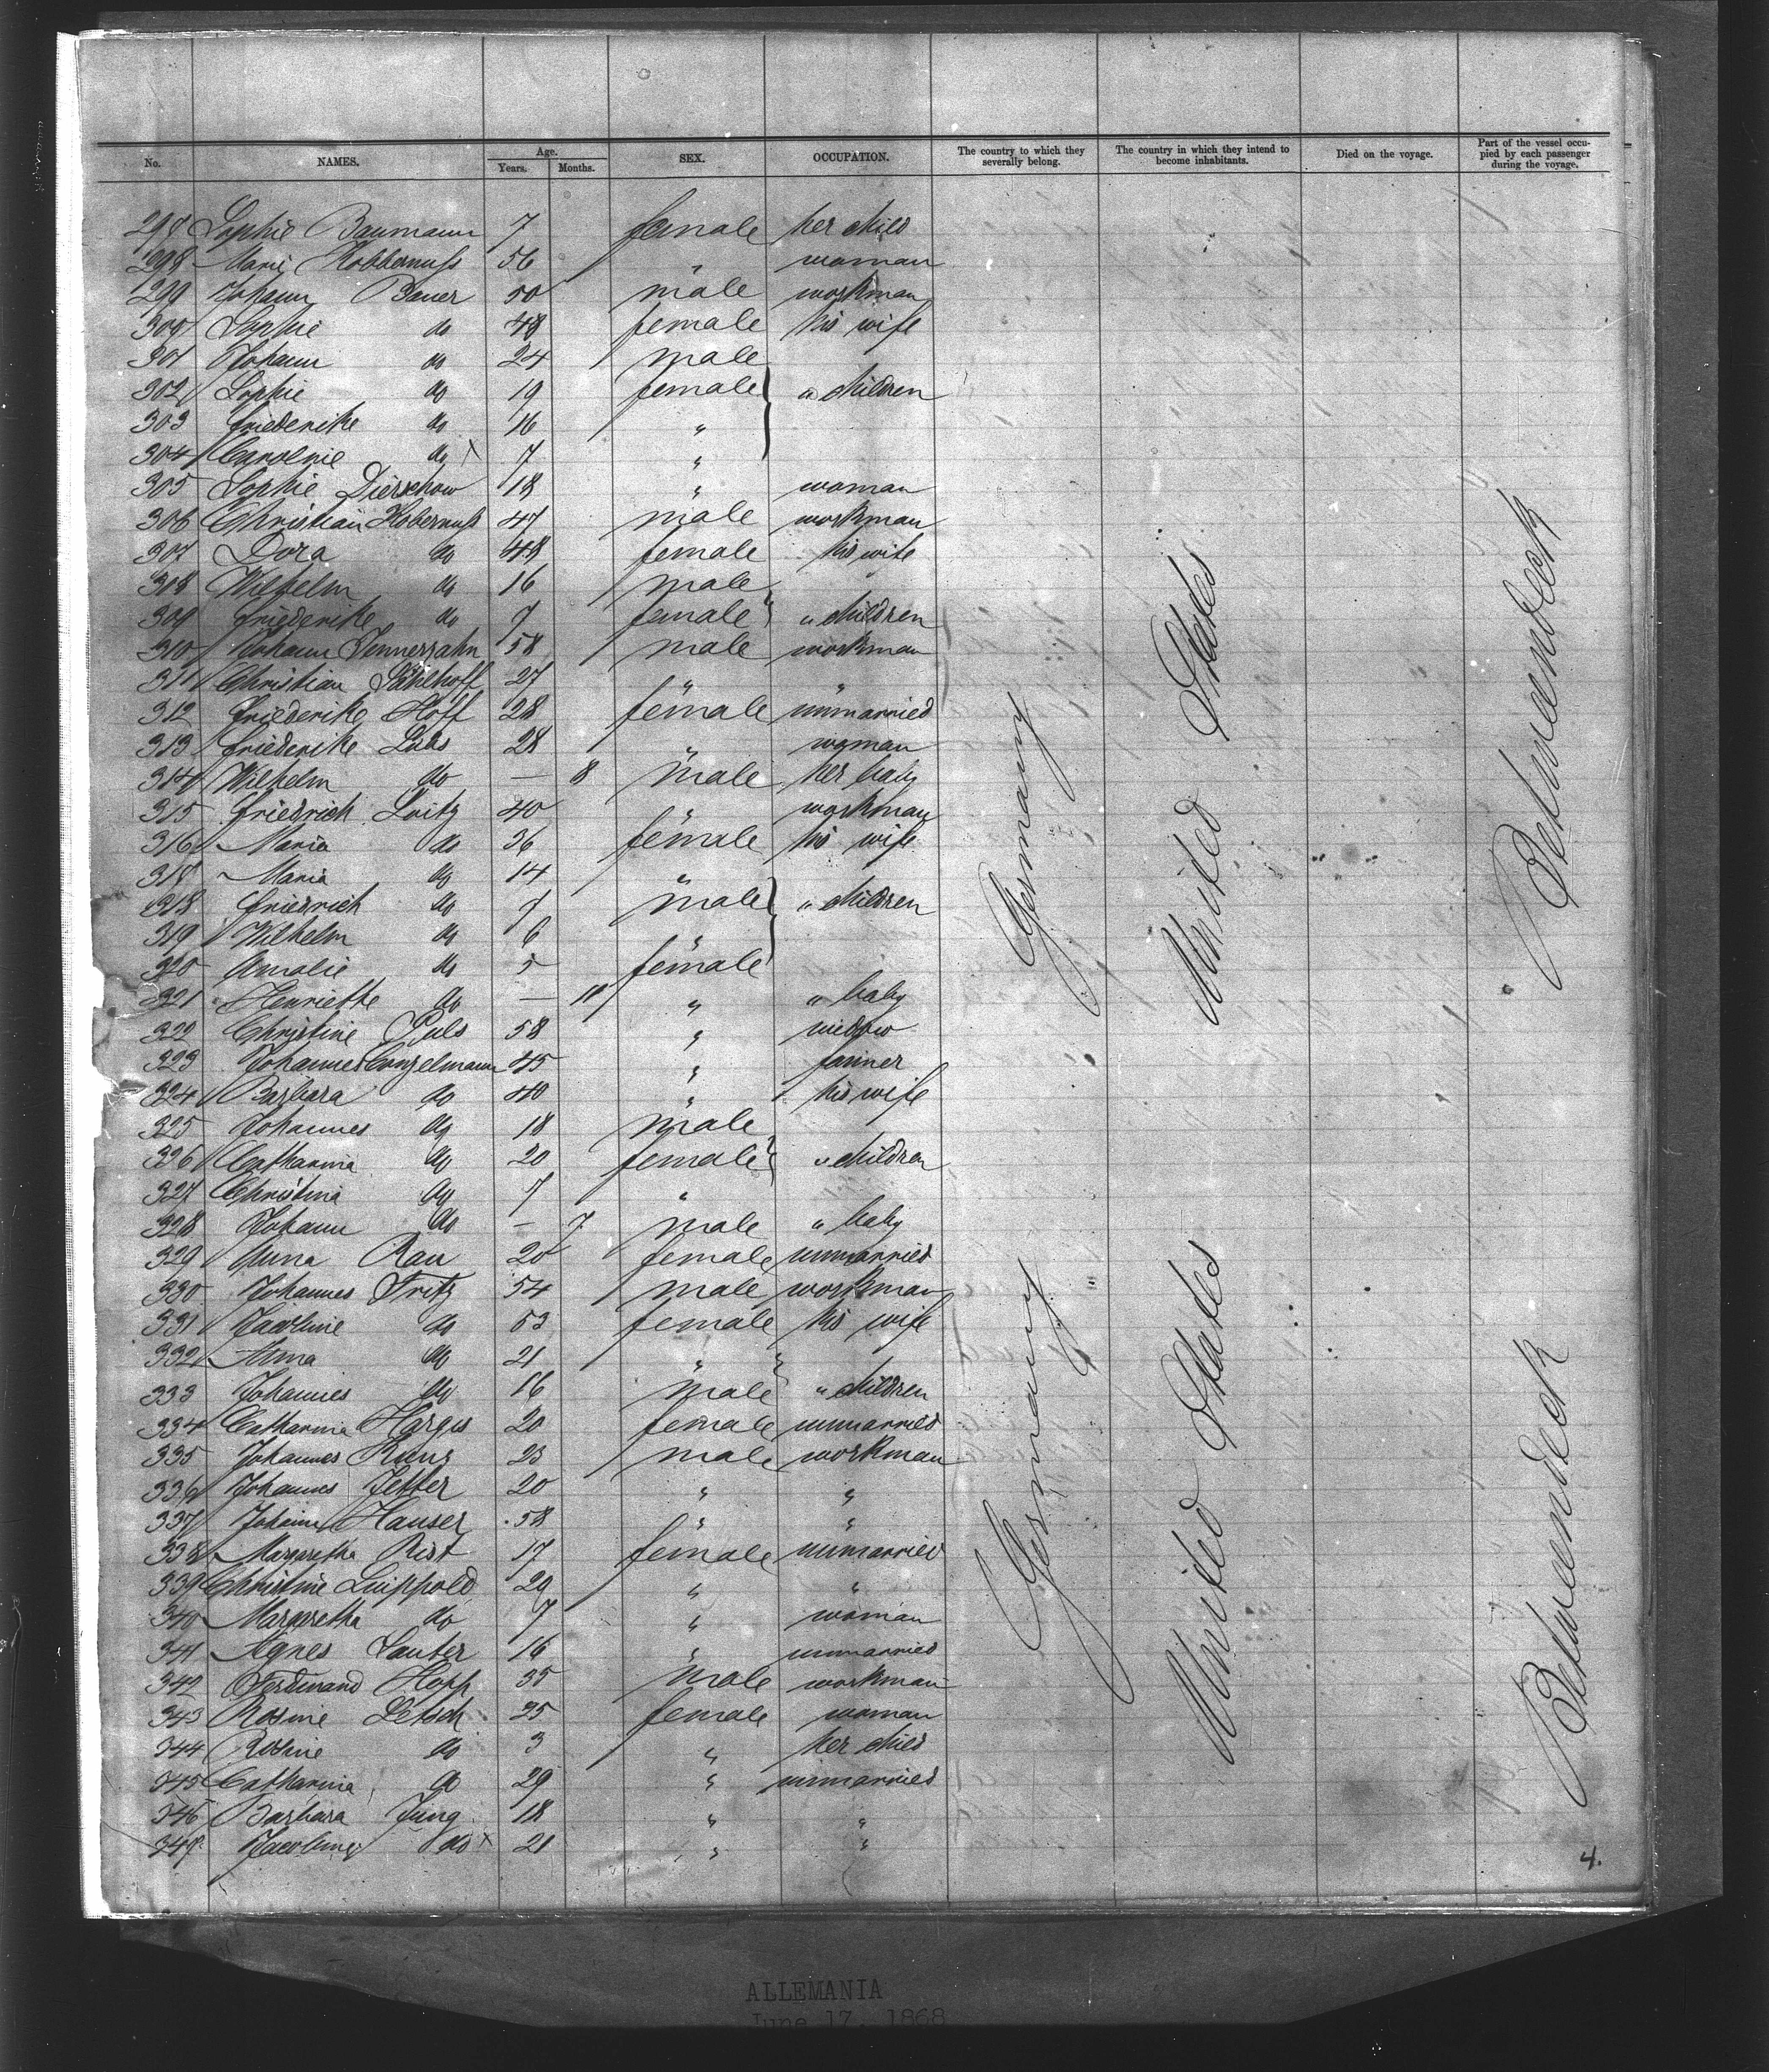 No. NAMES. Age. Years. Months. SEX. OCCUPATION. The country to which they severally belong. The country in which they intend to become inhabitants. Died on the voyage. Part of the vessel occupied by each passenger during the voyage.
297 Sophie Baumann 7 female her child
298 Marie Kobbernuss 56 " woman
299 Johann Bauer 50 male workman
300 Sophie do 48 female his wife
301 Johann do 24 male
302 Sophie do 19 female " children
303 Friederike do 16 "
304 Caroline do 7 "
305 Sophie Dierchow 18 " woman
306 Christian Kobernuss 47 male workman
307 Dora do 48 female his wife
308 Wilhelm do 16 male
309 Friederike do 7 female " children
310 Johann Tennerzahn 58 male workman
311 Christian 27 " "
312 Friederike Hoff 28 female unmarried
313 Friederike 28 " woman
314 Wilhelm do — 8 male her baby
315 Friedrich Loitz 40 " workman
316 Maria do 36 female his wife
317 Maria do 14 "
318 Friedrich do 7 male " children
319 Wilhelm do 6 "
320 Amalie do 5 female
321 Henriette do — 10 " " baby
322 Christine Puls 58 " widow
323 Johannes Conzelmann 45 " farmer
324 Barbara do 40 " his wife
325 Johannes do 18 male
326 Catharina do 20 female " children
327 Christina do 7 "
328 Johann do — 7 male " baby
329 Anna Rau 20 female unmarried
330 Johannes Fritz 54 male workman
331 Jacobine do 53 female his wife
332 Anna do 21 "
333 Johannes do 16 male " children
334 Catharina 20 female unmarried
335 Johannes 23 male workman
336 Johannes Jetter 20 " "
337 Johann Hauser 58 " "
338 Margaretha Rist 17 female unmarried
339 Christine Luippold 29 " "
340 Margaretha do 7 " woman
341 Agnes Sauter 16 " unmarried
342 Ferdinand Hopp 35 male workman
343 Rosine Letsch 25 female woman
344 Rosine do 3 " her child
345 Catharina do 29 " unmarried
346 Barbara Jung 18 " "
347 Jacobine do 21 " "
Germany
United States
Betweendeck
Germany
United States
Betweendeck
4.
ALLEMANIA
June 17, 1868